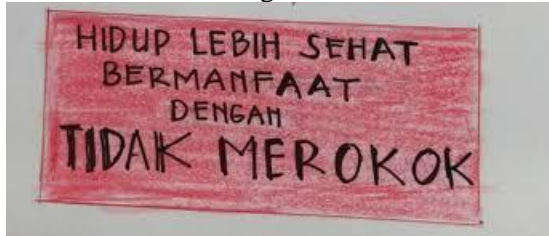 HIDUP LEBIH SEHAT
BERMANFAAT
DENGAH
TIDAK MEROKOK